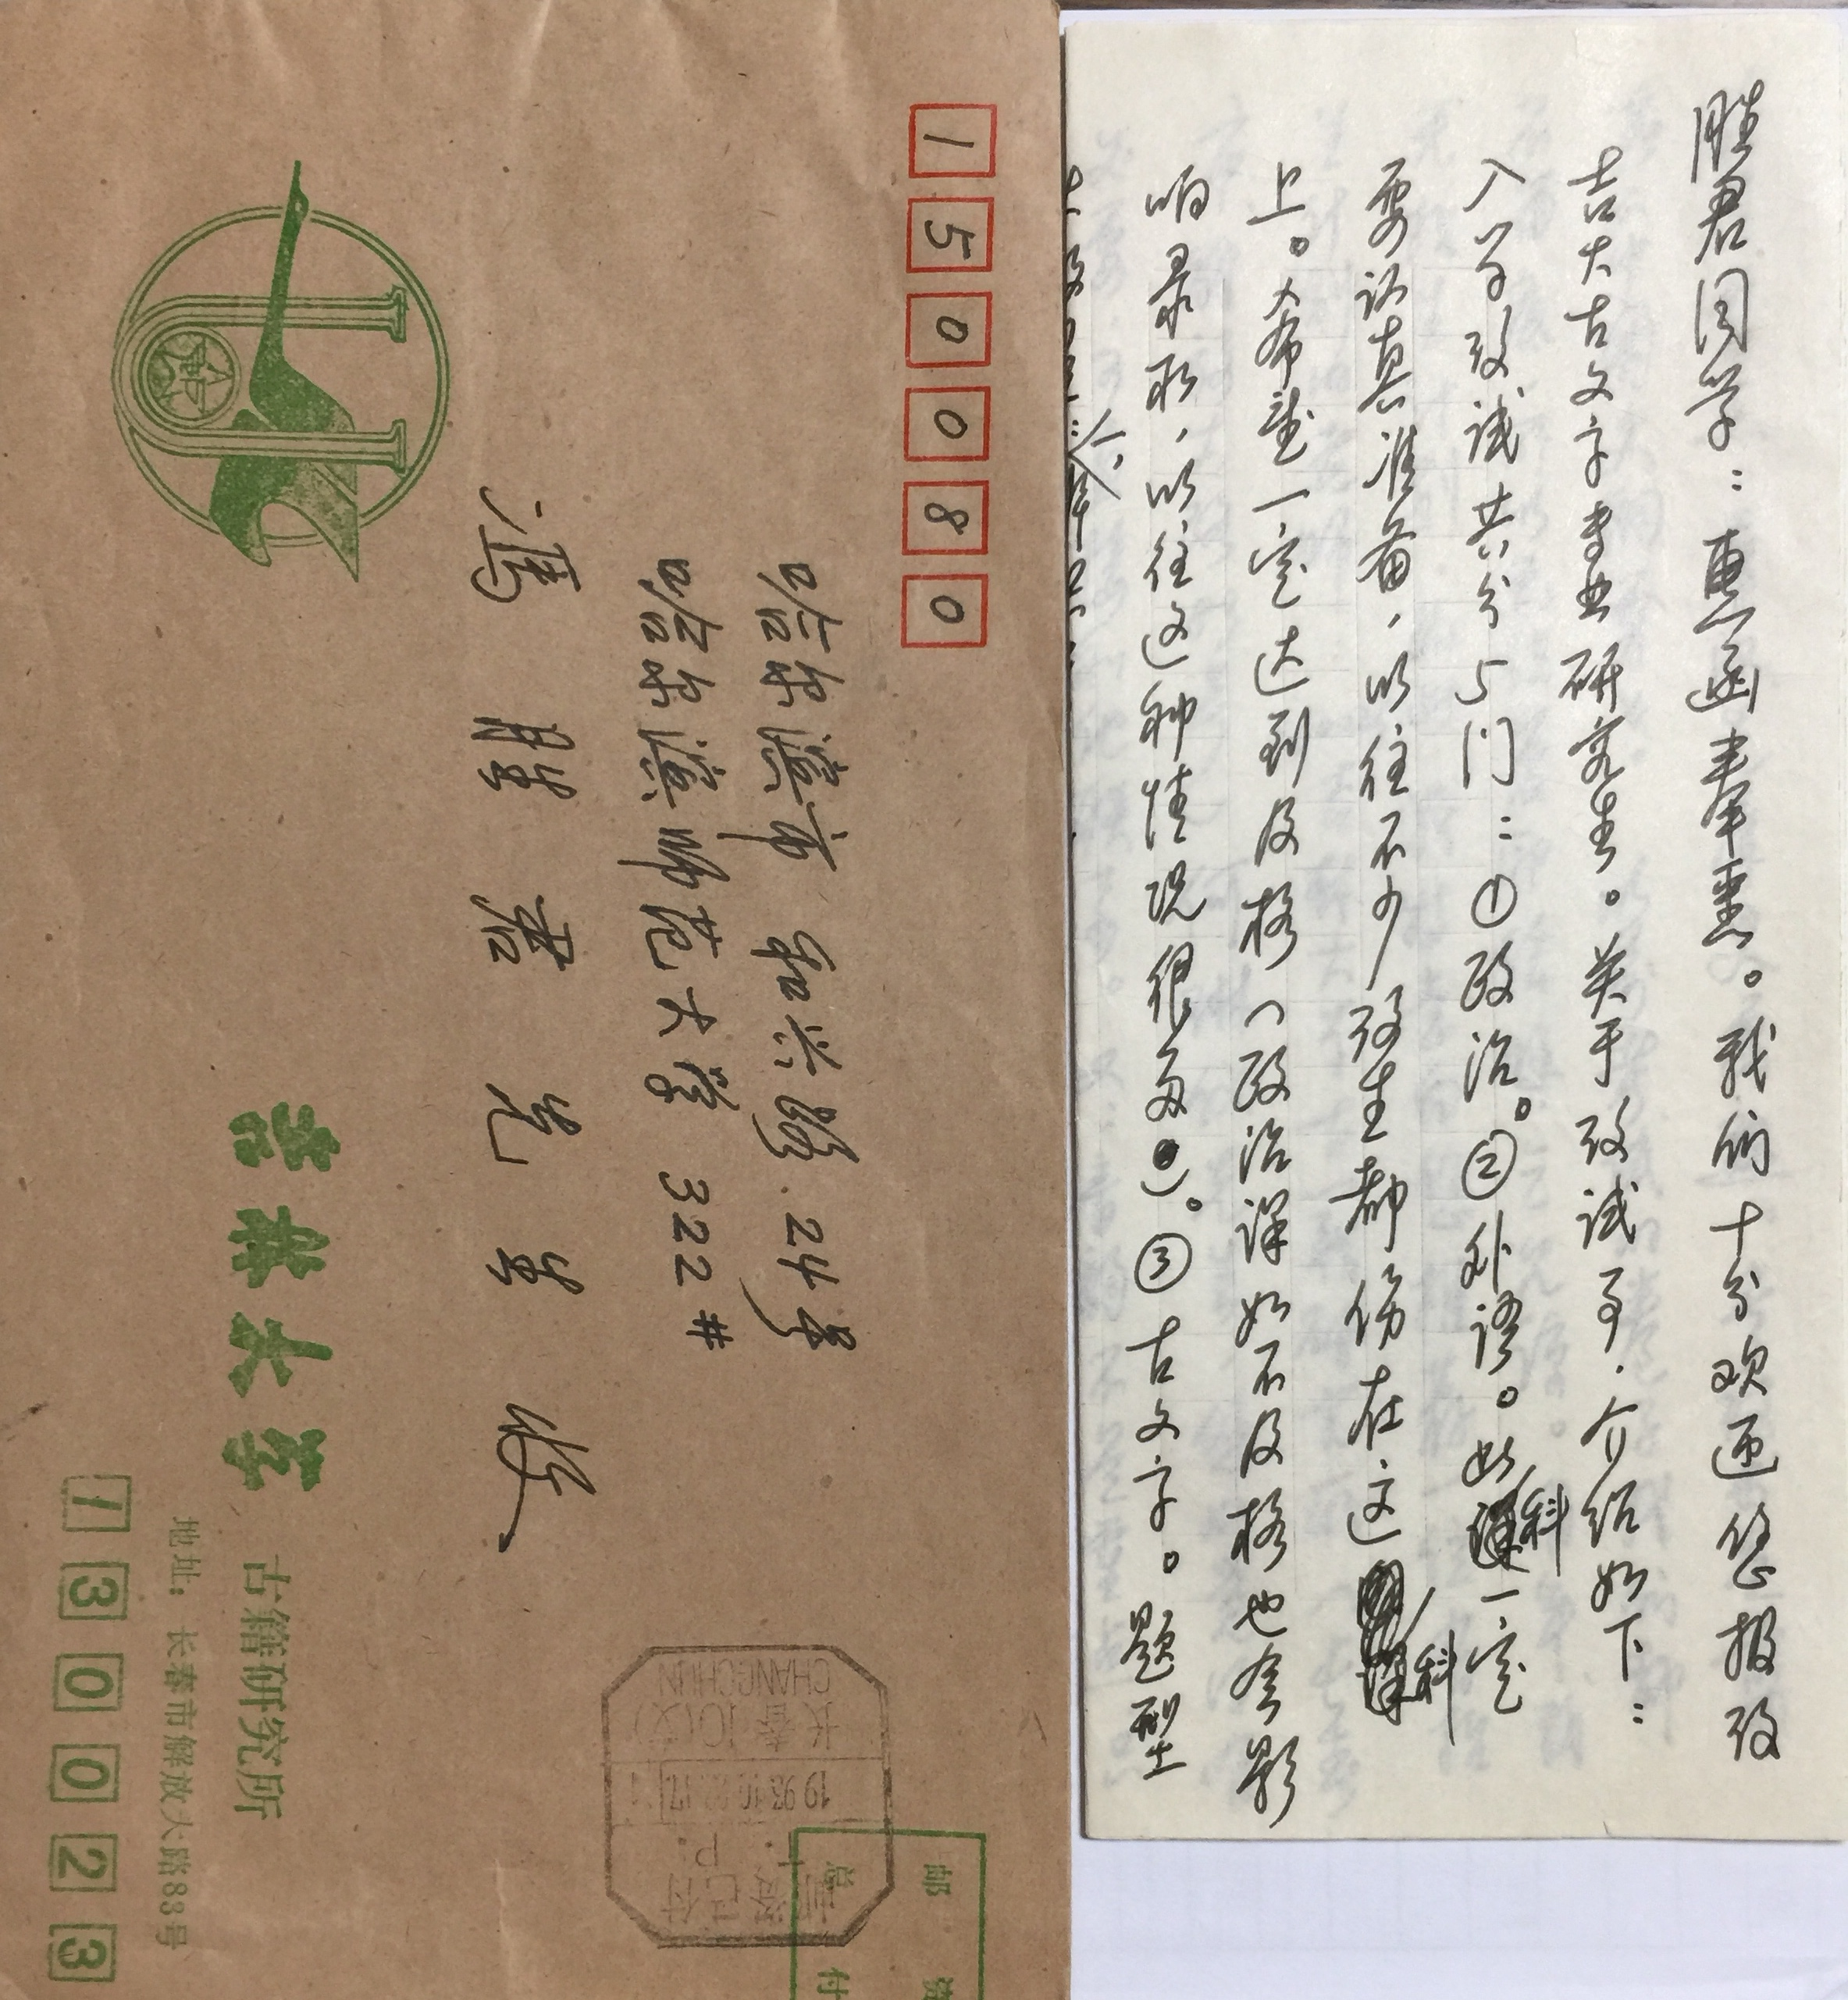 150080
哈尔滨市 和兴路 24号
哈尔滨师范大学 322#
冯胜君先生收
吉林大学 古籍研究所
地址：长春市解放大路83号
130023
邮资已付
T.P.
1993.10.
长春 10(支)
CHANGCHUN
邮
总付
胜君同学：惠函奉悉。我们十分欢迎您报考
吉大古文字专业研究生。关于考试事，介绍如下：
入学考试共分5门：①政治。②外语。此科一定
要认真准备，以往不少考生都伤在这科
上。希望一定达到及格（政治课如不及格也会影
响录取，以往这种情况很多）。③古文字。题型